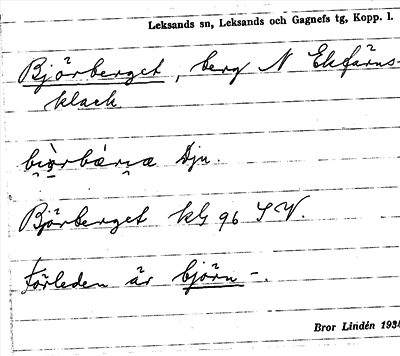 Leksands sn, Leksands och Gagnefs tg, Kopp. l.
Björberget, berg N Ekfärns-
klack
Dju.
Björberget kbl 96 SV.
Förleden är björn-.
Bror Lindén 1936